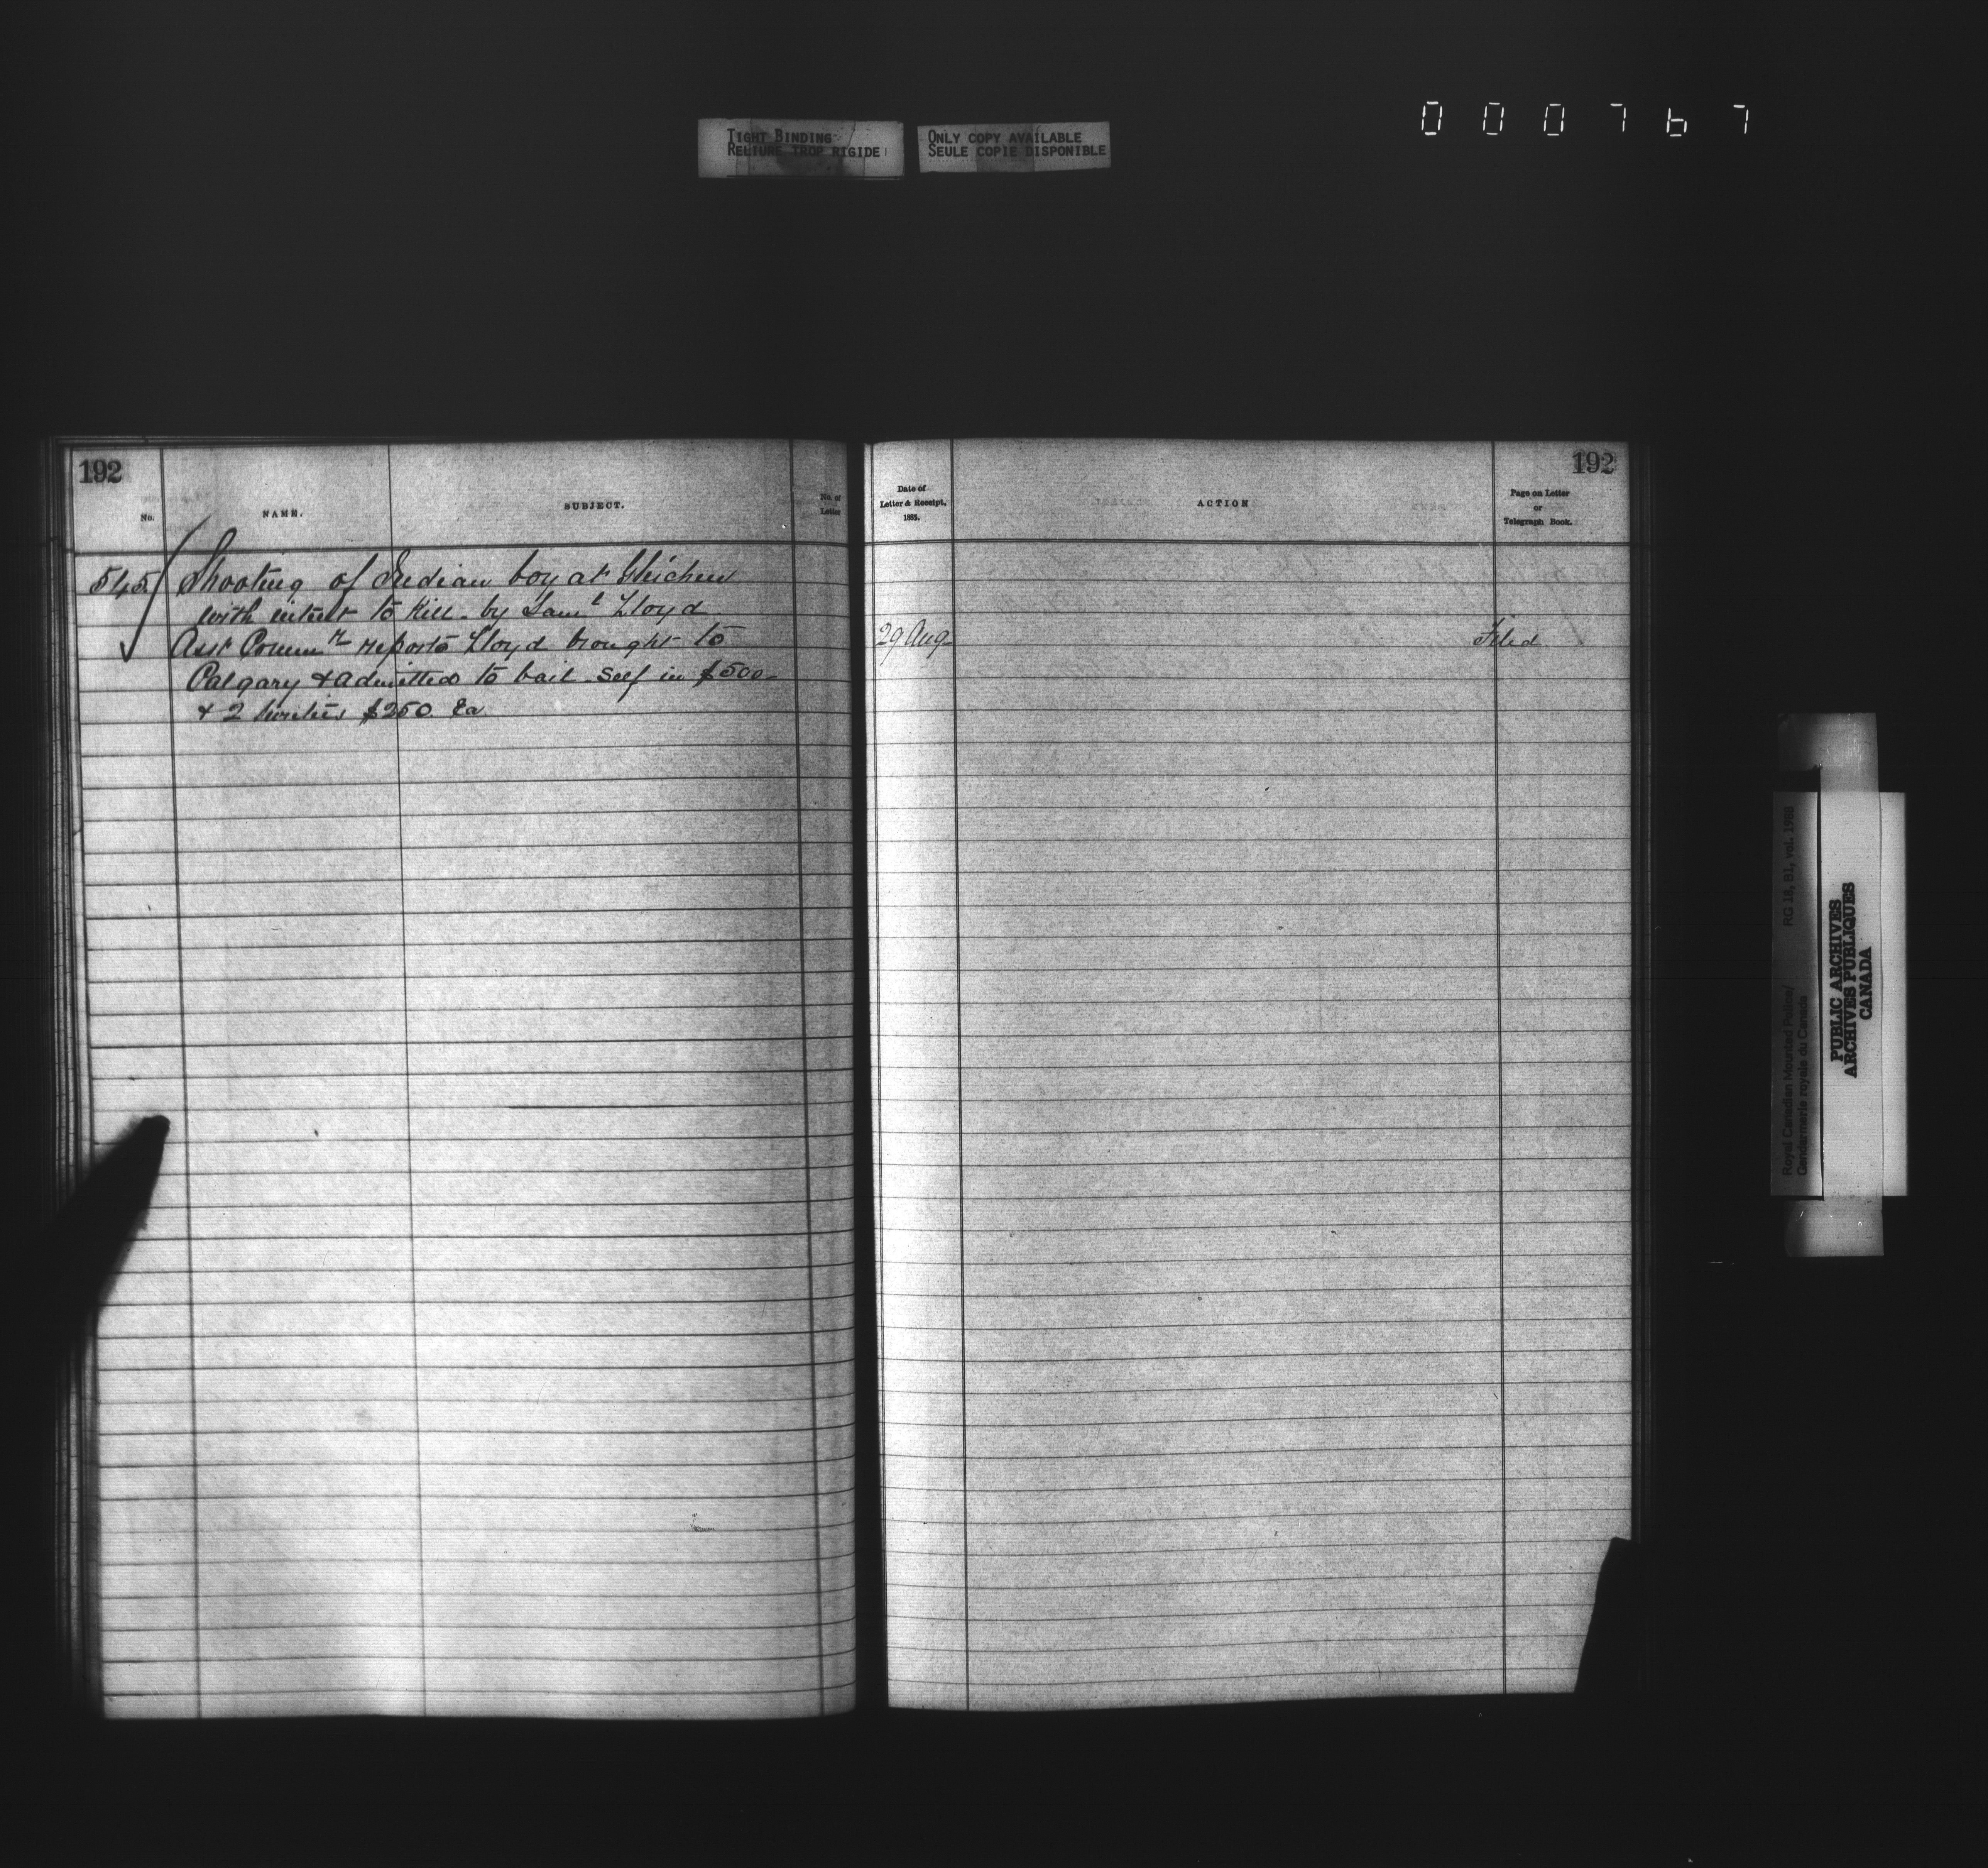 000767
TIGHT BINDING
RELIURE TROP RIGIDE
ONLY COPY AVAILABLE
SEULE COPIE DISPONIBLE
192
No.
NAME.
SUBJECT.
No. of
Letter
545 Shooting of Indian boy at Gleichen
with intent to Kill - by Saml Lloyd
Asst Commr reports Lloyd brought to
Calgary & admitted to bail - self in $500 -
& 2 sureties $250 Ea
192
Date of
Letter & Receipt,
1885.
ACTION
Page on Letter
or
Telegraph Book.
29 Aug
Filed
Royal Canadian Mounted Police/
Gendarmerie royale du Canada
RG 18, B1, vol. 1968
PUBLIC ARCHIVES
ARCHIVES PUBLIQUES
CANADA